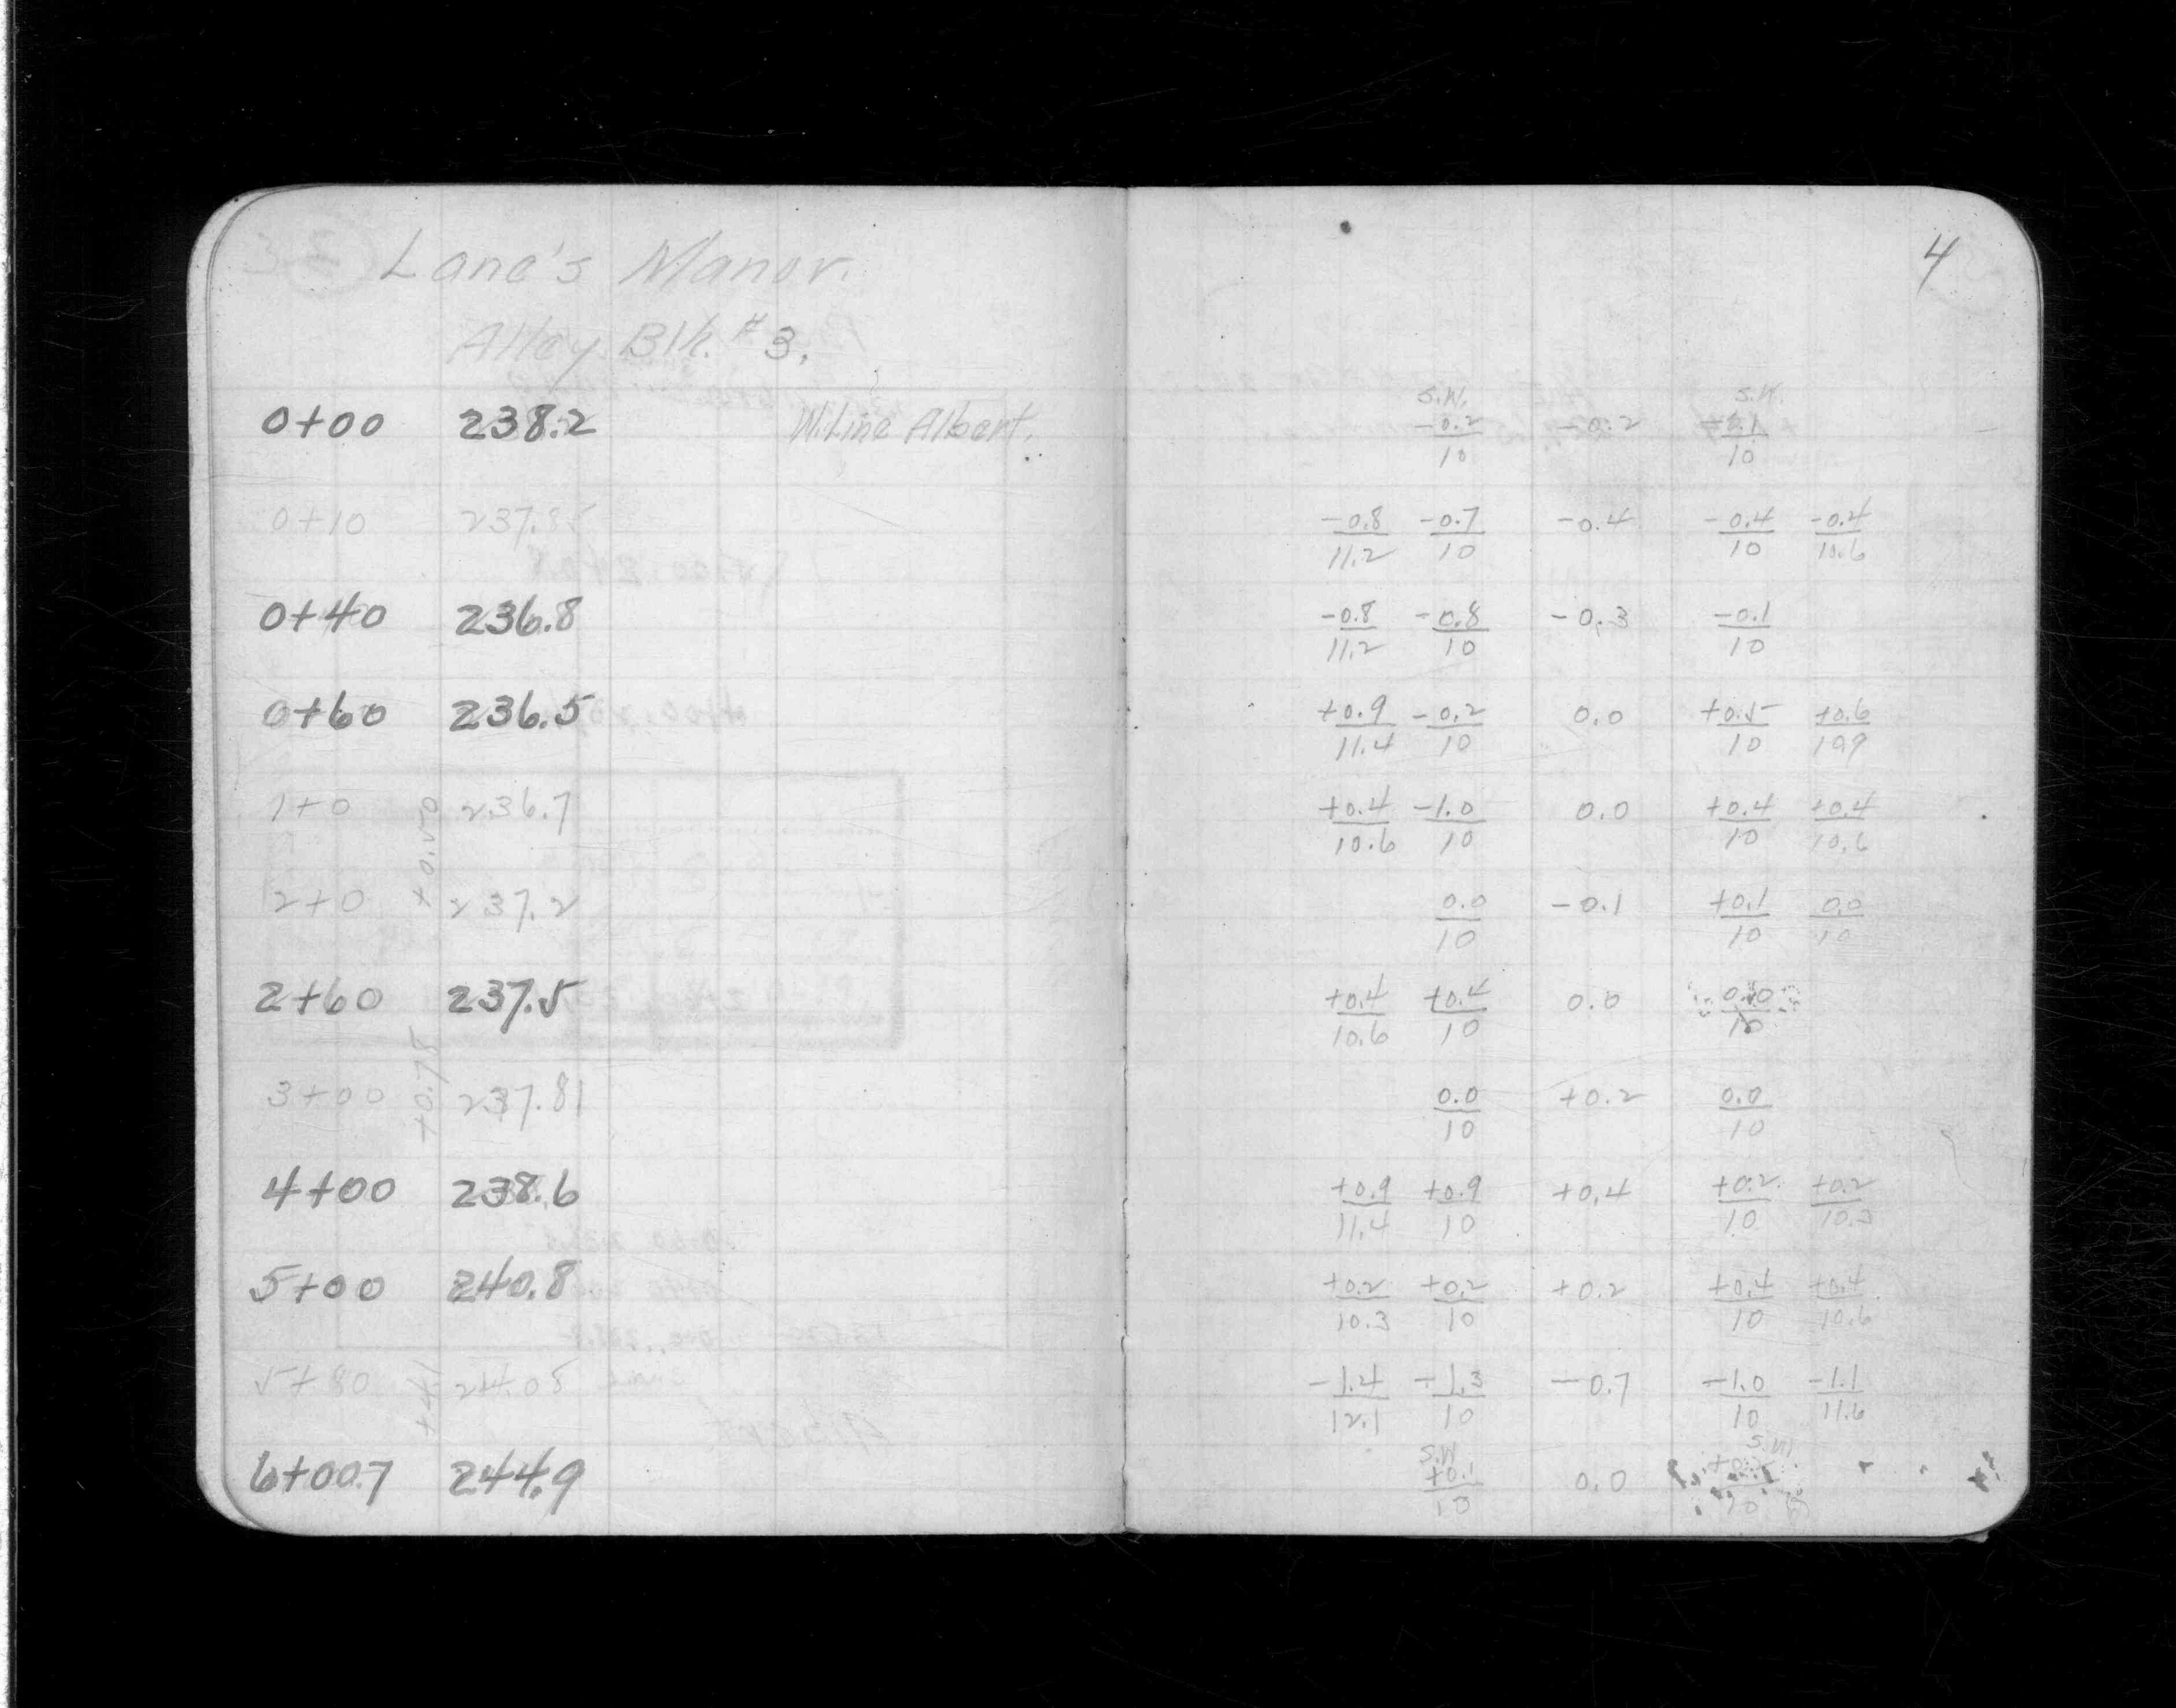 Lane's Manor.
Alley Blk. #3.
4
S.W. S.W.
0+00 238.2 W. Line Albert. -0.2/10 -0.2 +0.1/10
0+10 237.85 -0.8/11.2 -0.7/10 -0.4 -0.4/10 -0.4/10.6
0+40 236.8 -0.8/11.2 -0.8/10 -0.3 -0.1/10
0+60 236.5 +0.9/11.4 -0.2/10 0.0 +0.5/10 +0.6/10.9
1+0 236.7 +0.4/10.6 -1.0/10 0.0 +0.4/10 +0.4/10.6
+0.50
2+0 237.2 0.0/10 -0.1 +0.1/10 0.0/10
2+60 237.5 +0.4/10.6 +0.4/10 0.0 0.0/10
+0.78
3+00 237.81 0.0/10 +0.2 0.0/10
4+00 238.6 +0.9/11.4 +0.9/10 +0.4 +0.2/10 +0.2/10.3
5+00 240.8 +0.2/10.3 +0.2/10 +0.2 +0.4/10 +0.4/10.6
5+80 244.08 -1.4/12.1 -1.3/10 -0.7 -1.0/10 -1.1/11.6
+4.1
S.W S.W.
6+00.7 244.9 +0.1/10 0.0 10